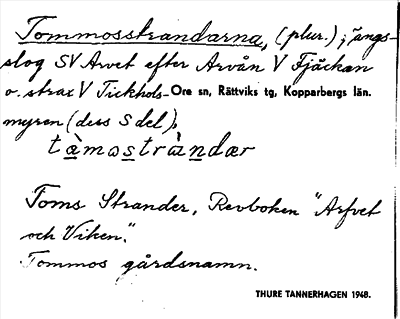 Tommosstrandarna, (plur.); ängs-
slog SV Arvet efter Arvån V Fjäckan
o. strax V Tickhols- Ore sn, Rättviks tg, Kopparbergs län.
myren (dess S del),
tàmostràndær
Toms Strander, Revboken "Arfvet
och Viken".
Tommos gårdsnamn.
THURE TANNERHAGEN 1948.